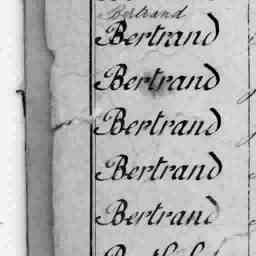 Bertrand
Bertrand
Bertrand
Bertrand
Bertrand
Bertrand